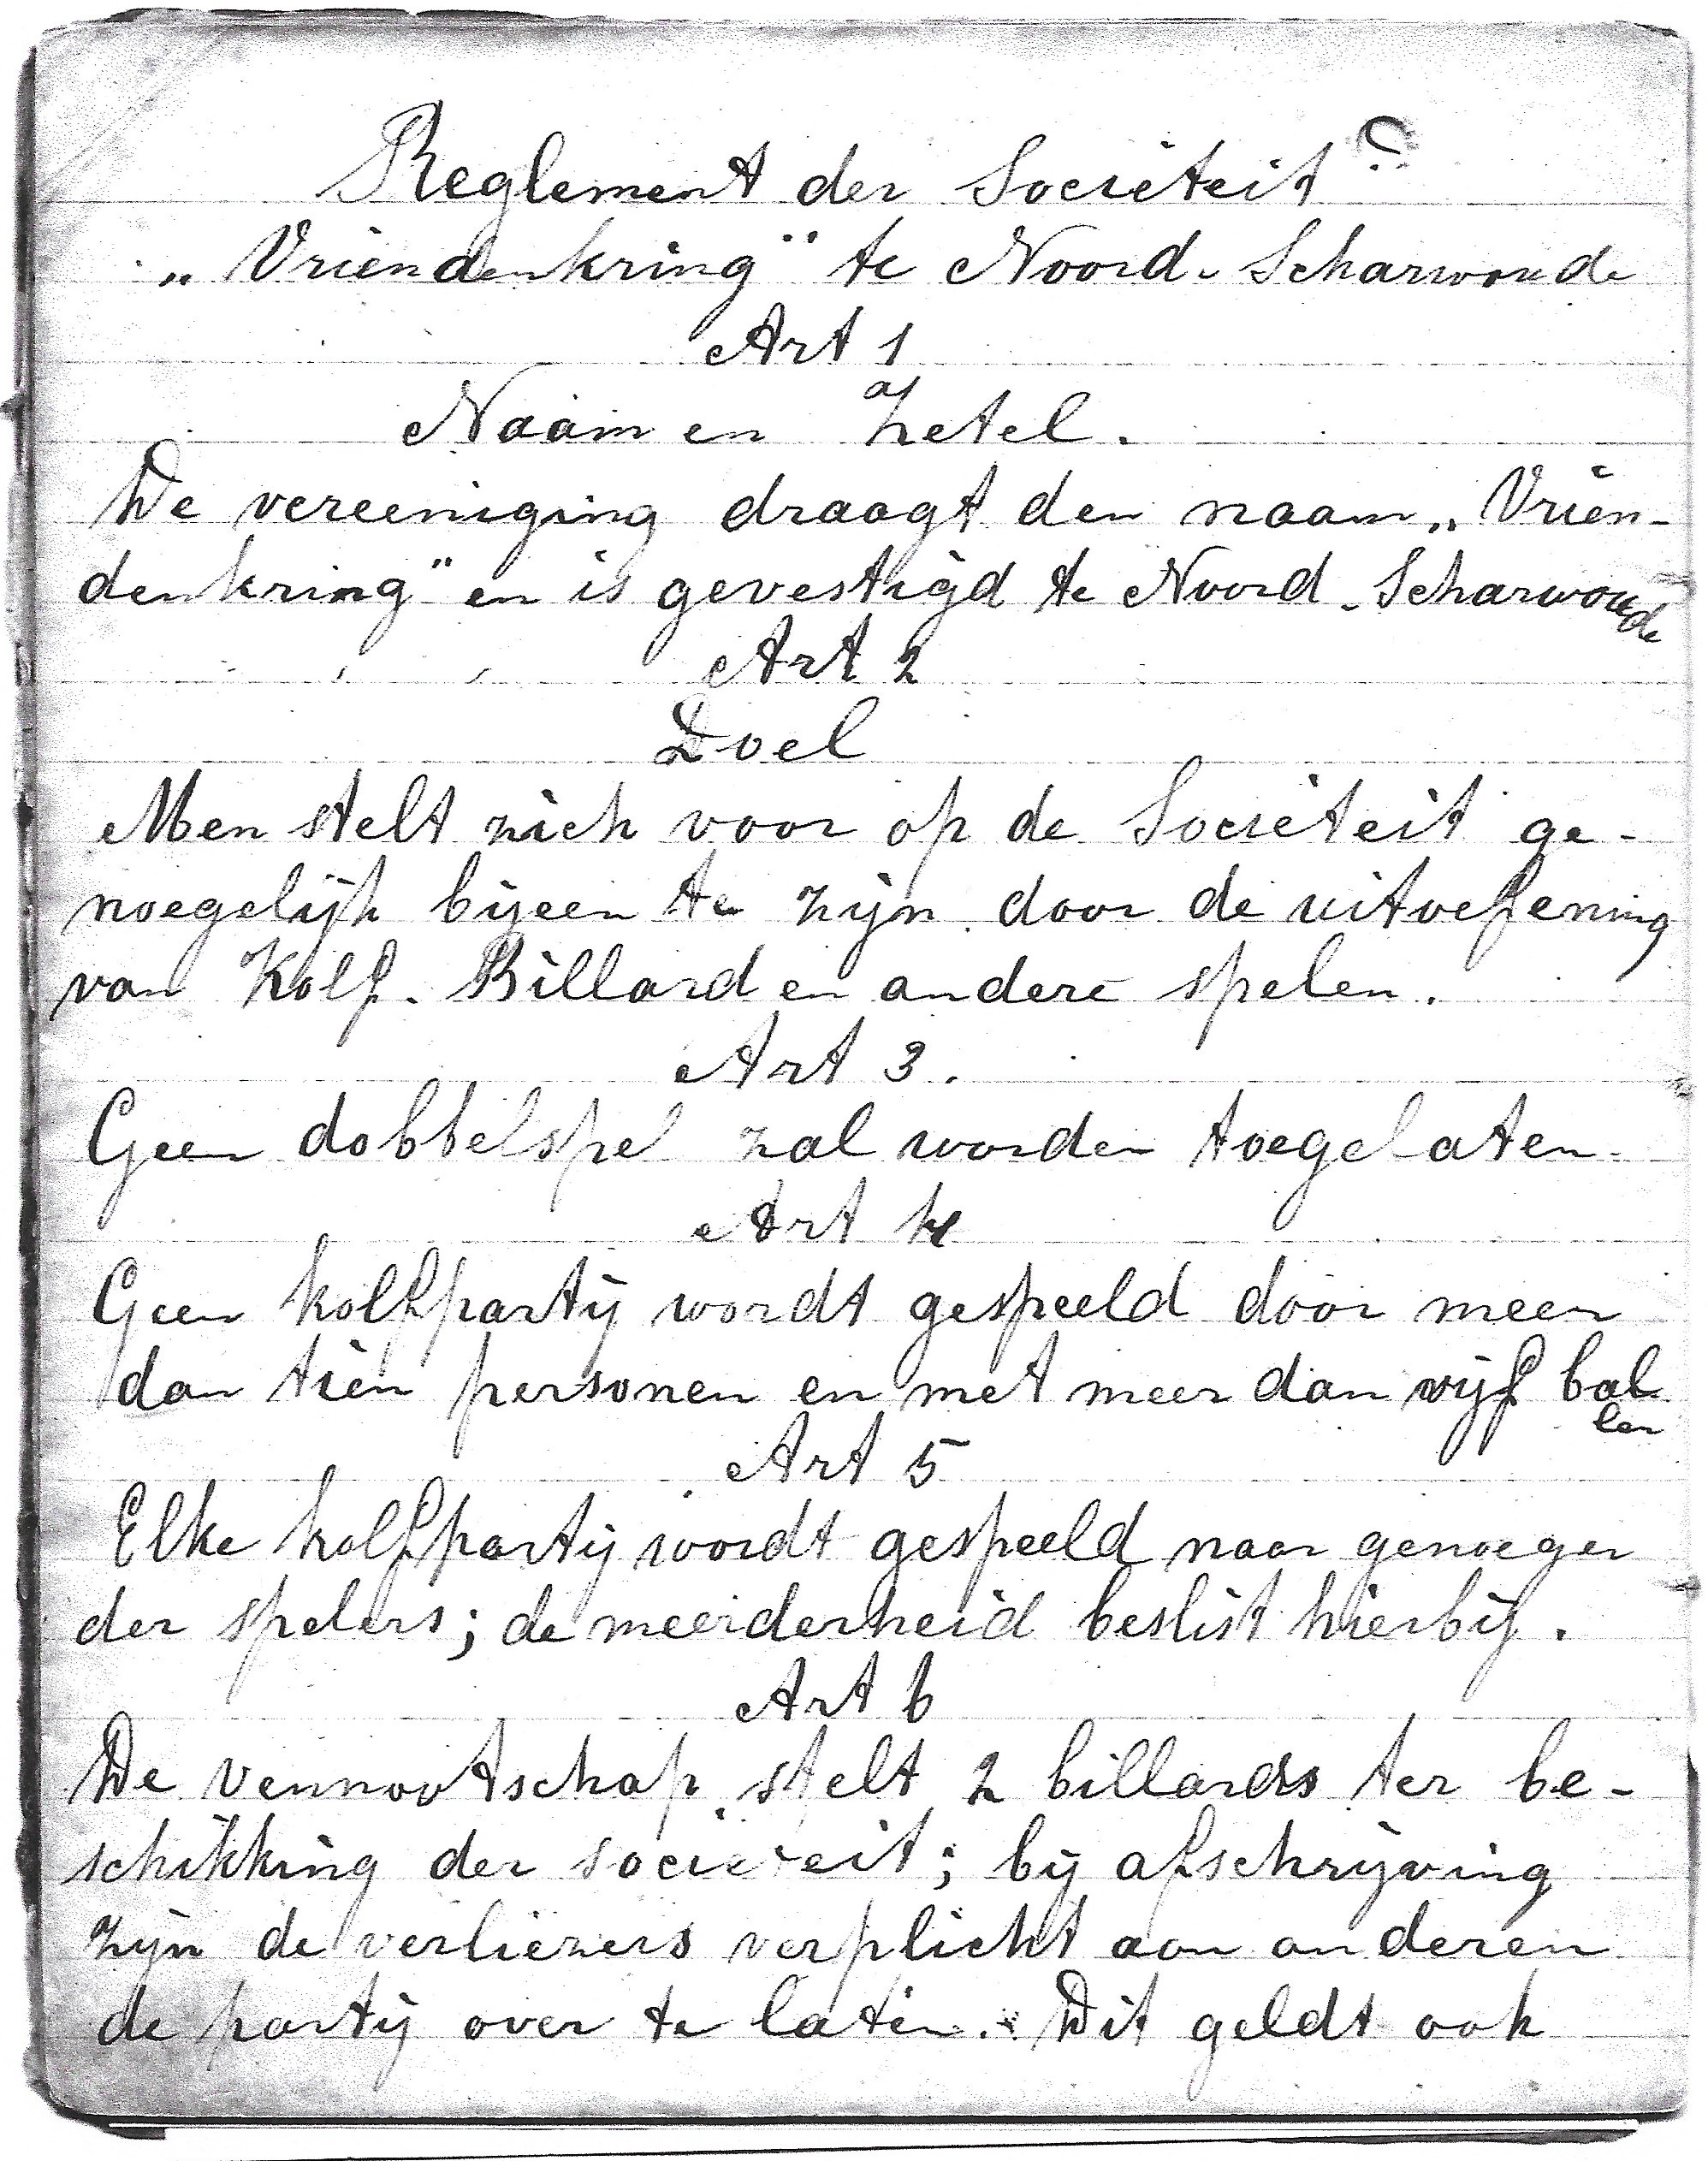 Reglement der Societeit
„Vriendenkring" te Noord-Scharwoude
Art 1
Naam en Zetel.
De vereeniging draagt den naam „Vrien-
denkring" en is gevestigd te Noord-Scharwoude
Art 2
Doel
Men stelt zich voor op de Societeit ge-
noegelijk bijeen te zijn door de uitoefening
van Kolf. Billard en andere spelen.
Art 3.
Geen dobbelspel zal worden toegelaten.
Art 4
Geen kolfpartij wordt gespeeld door meer
dan tien personen en met meer dan vijf bal
len
Art 5
Elke kolfpartij wordt gespeeld naar genoegen
der spelers; de meerderheid beslist hierbij.
Art 6
De vennootschap stelt 2 billards ter be-
schikking der societeit; bij afschrijving
zijn de verliezers verplicht aan anderen
de partij over te laten. Dit geldt ook